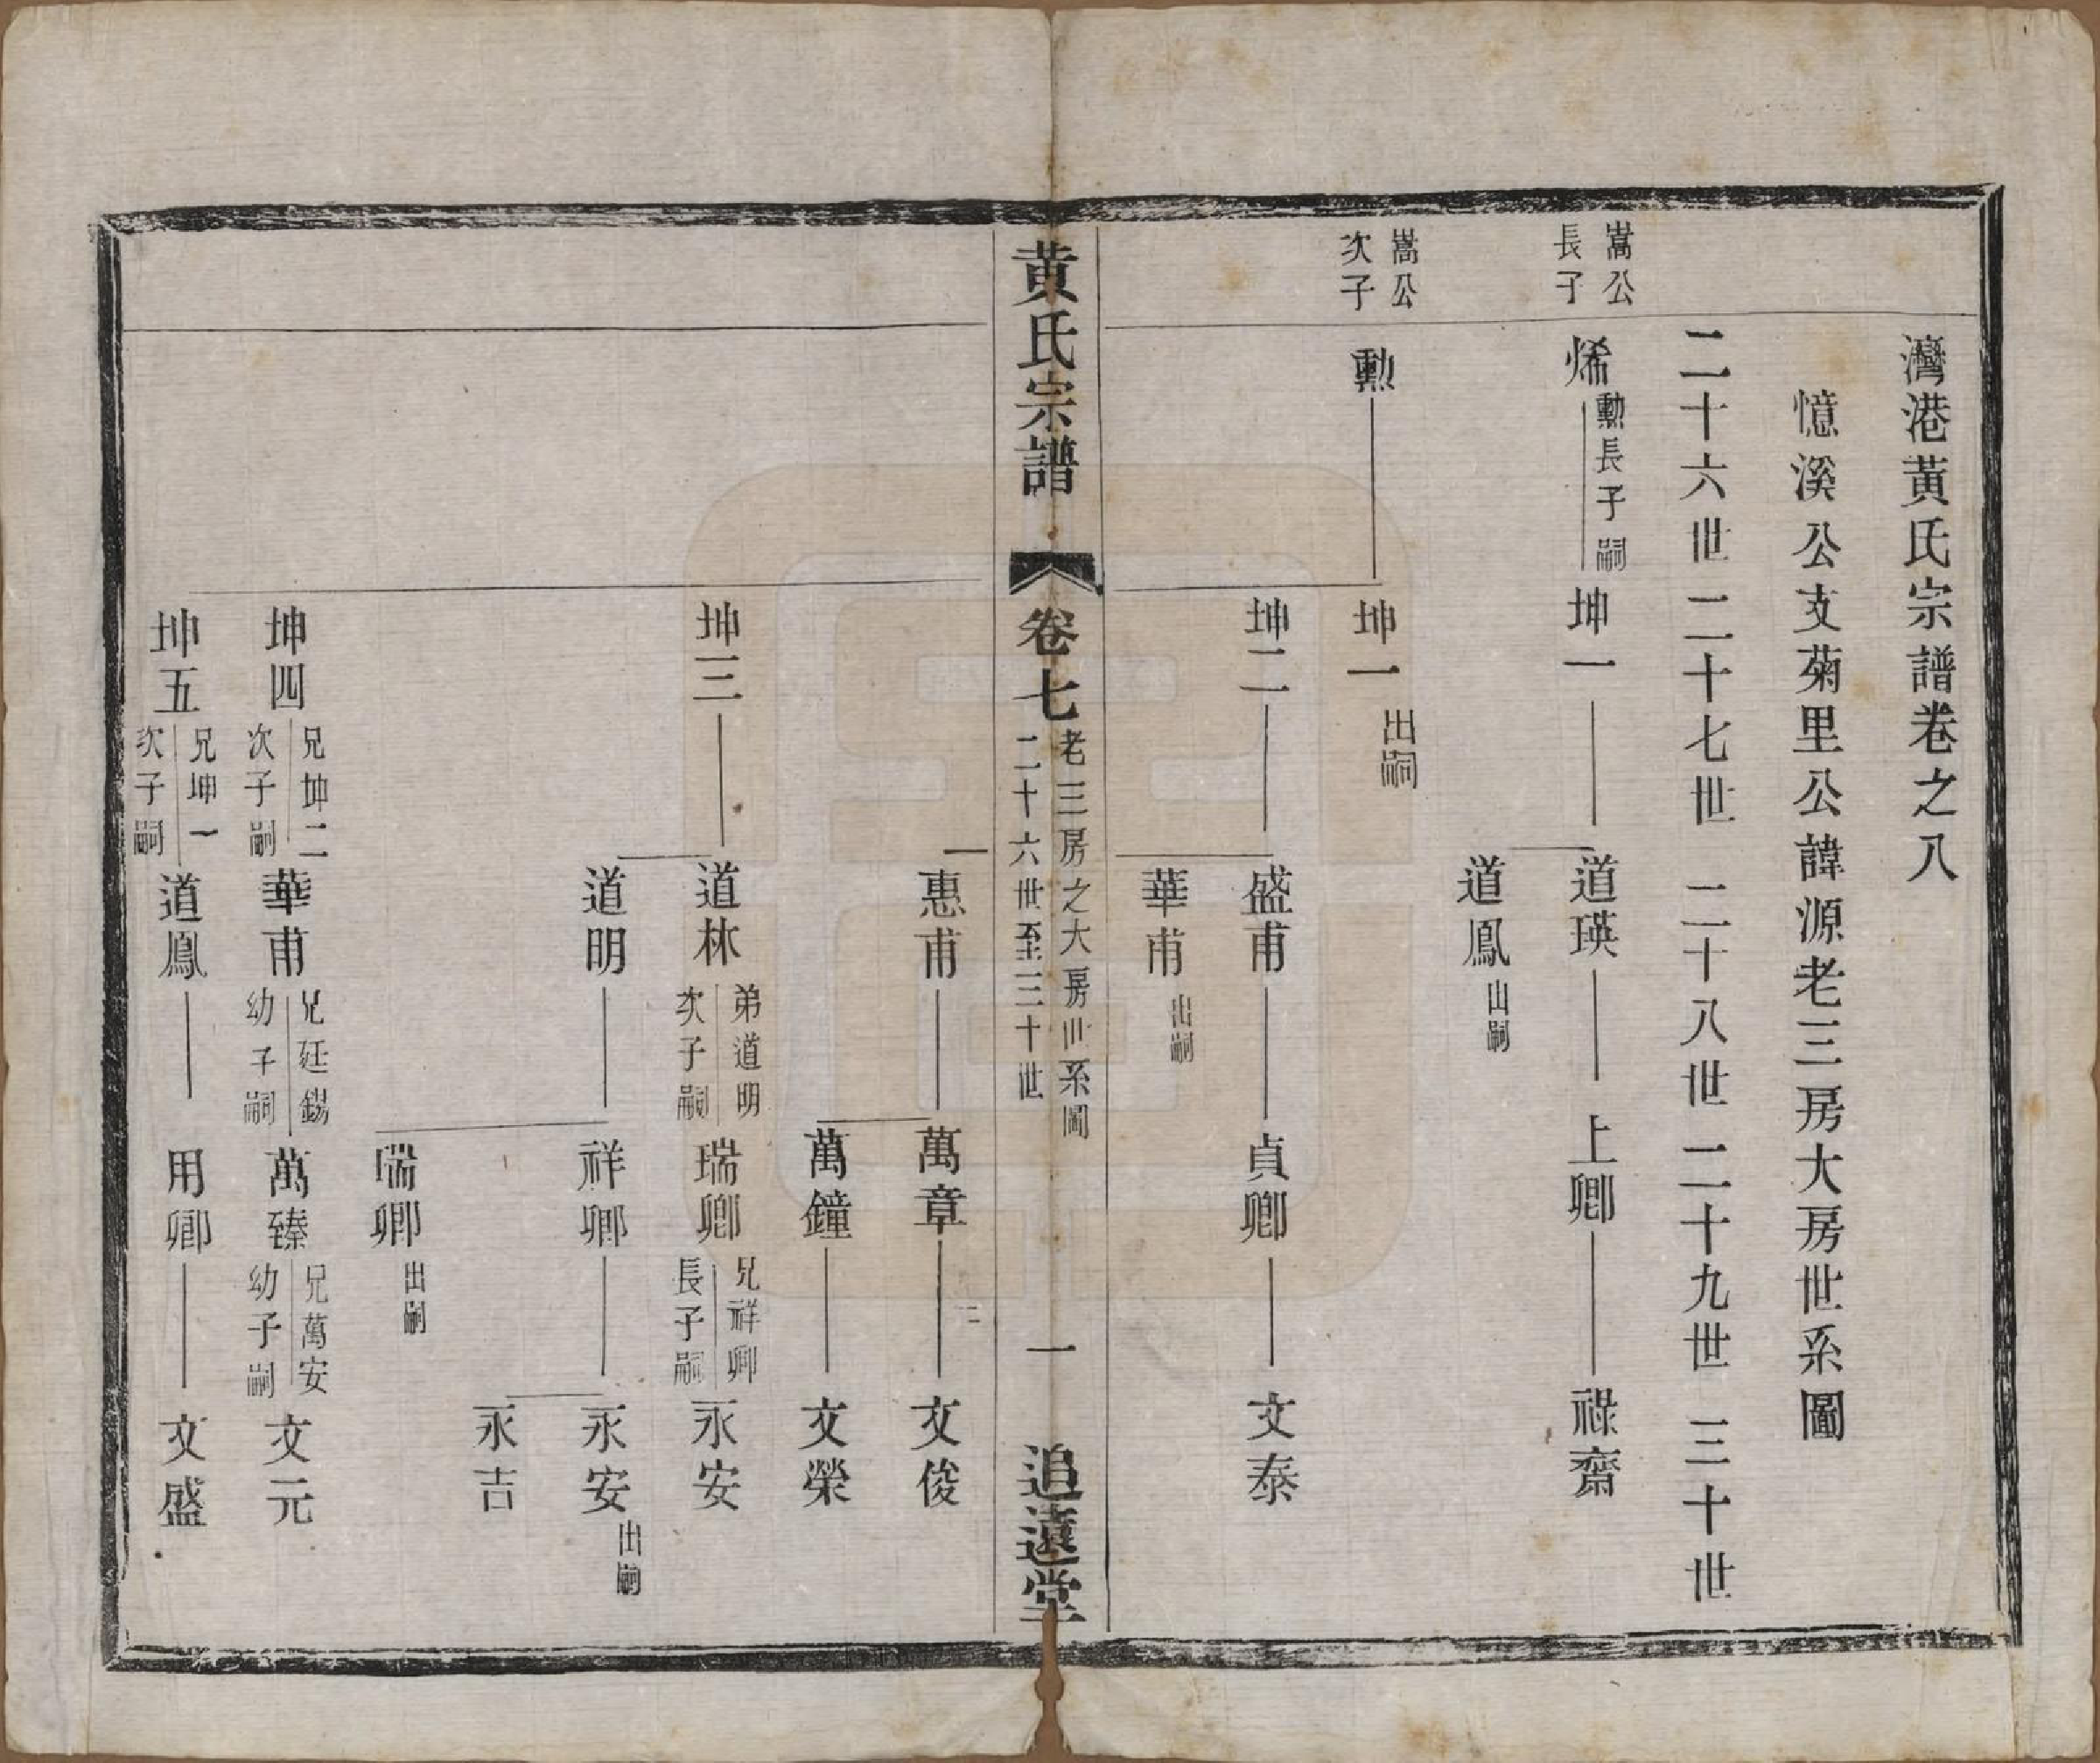 灣港黃氏宗譜卷之八
憶溪公支菊里公諱源老三房大房世系圖
二十六世 二十七世 二十八世 二十九世 三十世
嵩公長子
烯 勳長子嗣 坤一 道瑛 上卿 祿齋
道鳳 出嗣
嵩公次子
勳 坤一 出嗣
坤二 盛甫 貞卿 文泰
華甫 出嗣
黃氏宗譜 卷七 老三房之大房世系圖 二十六世至三十世 一 追遠堂
惠甫 萬章 文俊
萬鐘 文榮
坤三 道林 弟道明次子嗣 瑞卿 兄祥卿長子嗣 永安
道明 祥卿 永安 出嗣
永吉
瑞卿 出嗣
坤四 兄坤二次子嗣 華甫 兄廷錫幼子嗣 萬臻 兄萬安幼子嗣 文元
坤五 兄坤一次子嗣 道鳳 用卿 文盛